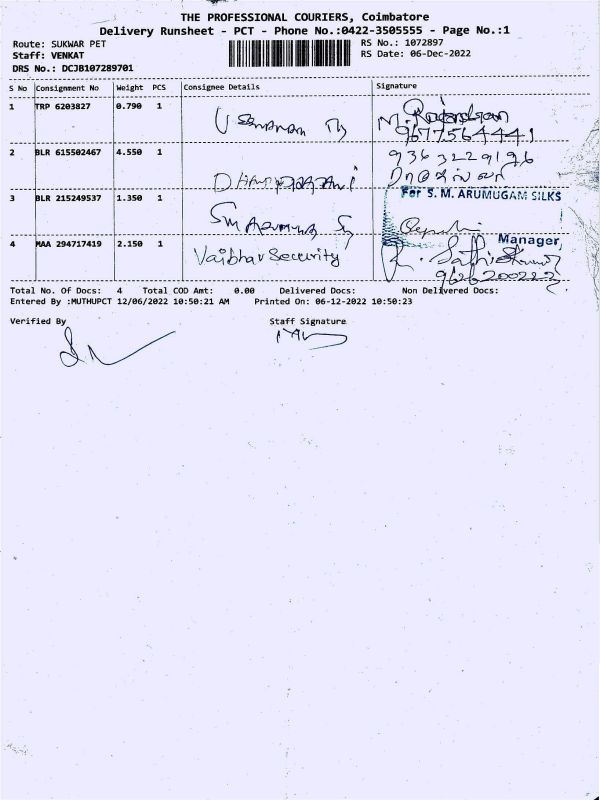 THE PROFESSIONAL COURIERS, Coimbatore
Delivery Runsheet - PCT - Phone No.:0422-3505555 - Page No.:1
Route: SUKWAR PET
RS No.: 1072897
Staff: VENKAT
RS Date: 06-Dec-2022
DRS No.: DCJB107289701
S No Consignment No Weight PCS Consignee Details Signature
1 TRP 6203827 0.790 1
9677564441
2 BLR 615502467 4.550 1
9363229126
3 BLR 215249537 1.350 1
For S. M. ARUMUGAM SILKS
Manager
4 MAA 294717419 2.150 1 Vaibhav Security
Total No. Of Docs: 4 Total COD Amt: 0.00 Delivered Docs: Non Delivered Docs:
Entered By :MUTHUPCT 12/06/2022 10:50:21 AM Printed On: 06-12-2022 10:50:23
Verified By Staff Signature